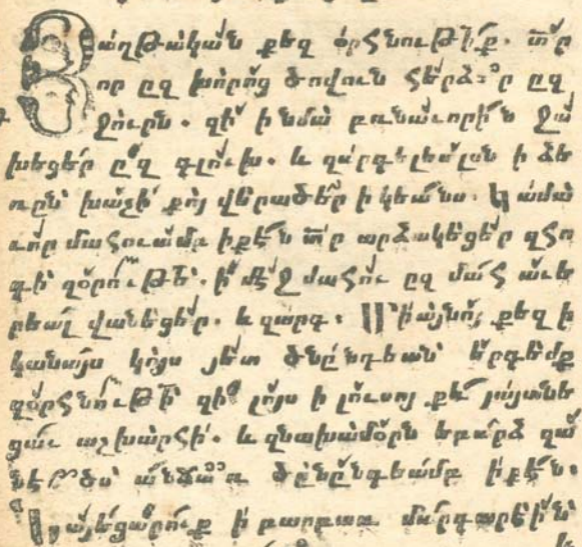 Յաղթական քեզ օրհնութիք. տր
որ ըզ խորոց ծովուն հերձեր ըզ
ջուրն. զի ի նմա բանաւորին ջա
խեցեր ըզ գլուխ. և զարգելեալսն ի ձե
ռըն խաչի քոյ վերածեր ի կեանս. Կամա
ւոր մահուամբ իքէն տր արձակեցեր զհո
գի զօրութե. ի մէջ մահու ըզ մահ աւե
րեալ վանեցեր. և զարգ. Միայնոյ քեզ ի
կանայս կոյս յետ ծնընդեան երգեմք
զօրհնութի զի լոյս ի լուսոյ քե յայտնե
ցաւ աշխարհի. և զնախամօրն երբարձ զա
նէծս անճառ ծընընդեամբ իքէն.
այեցարուք ի բարբառ մարգարէին